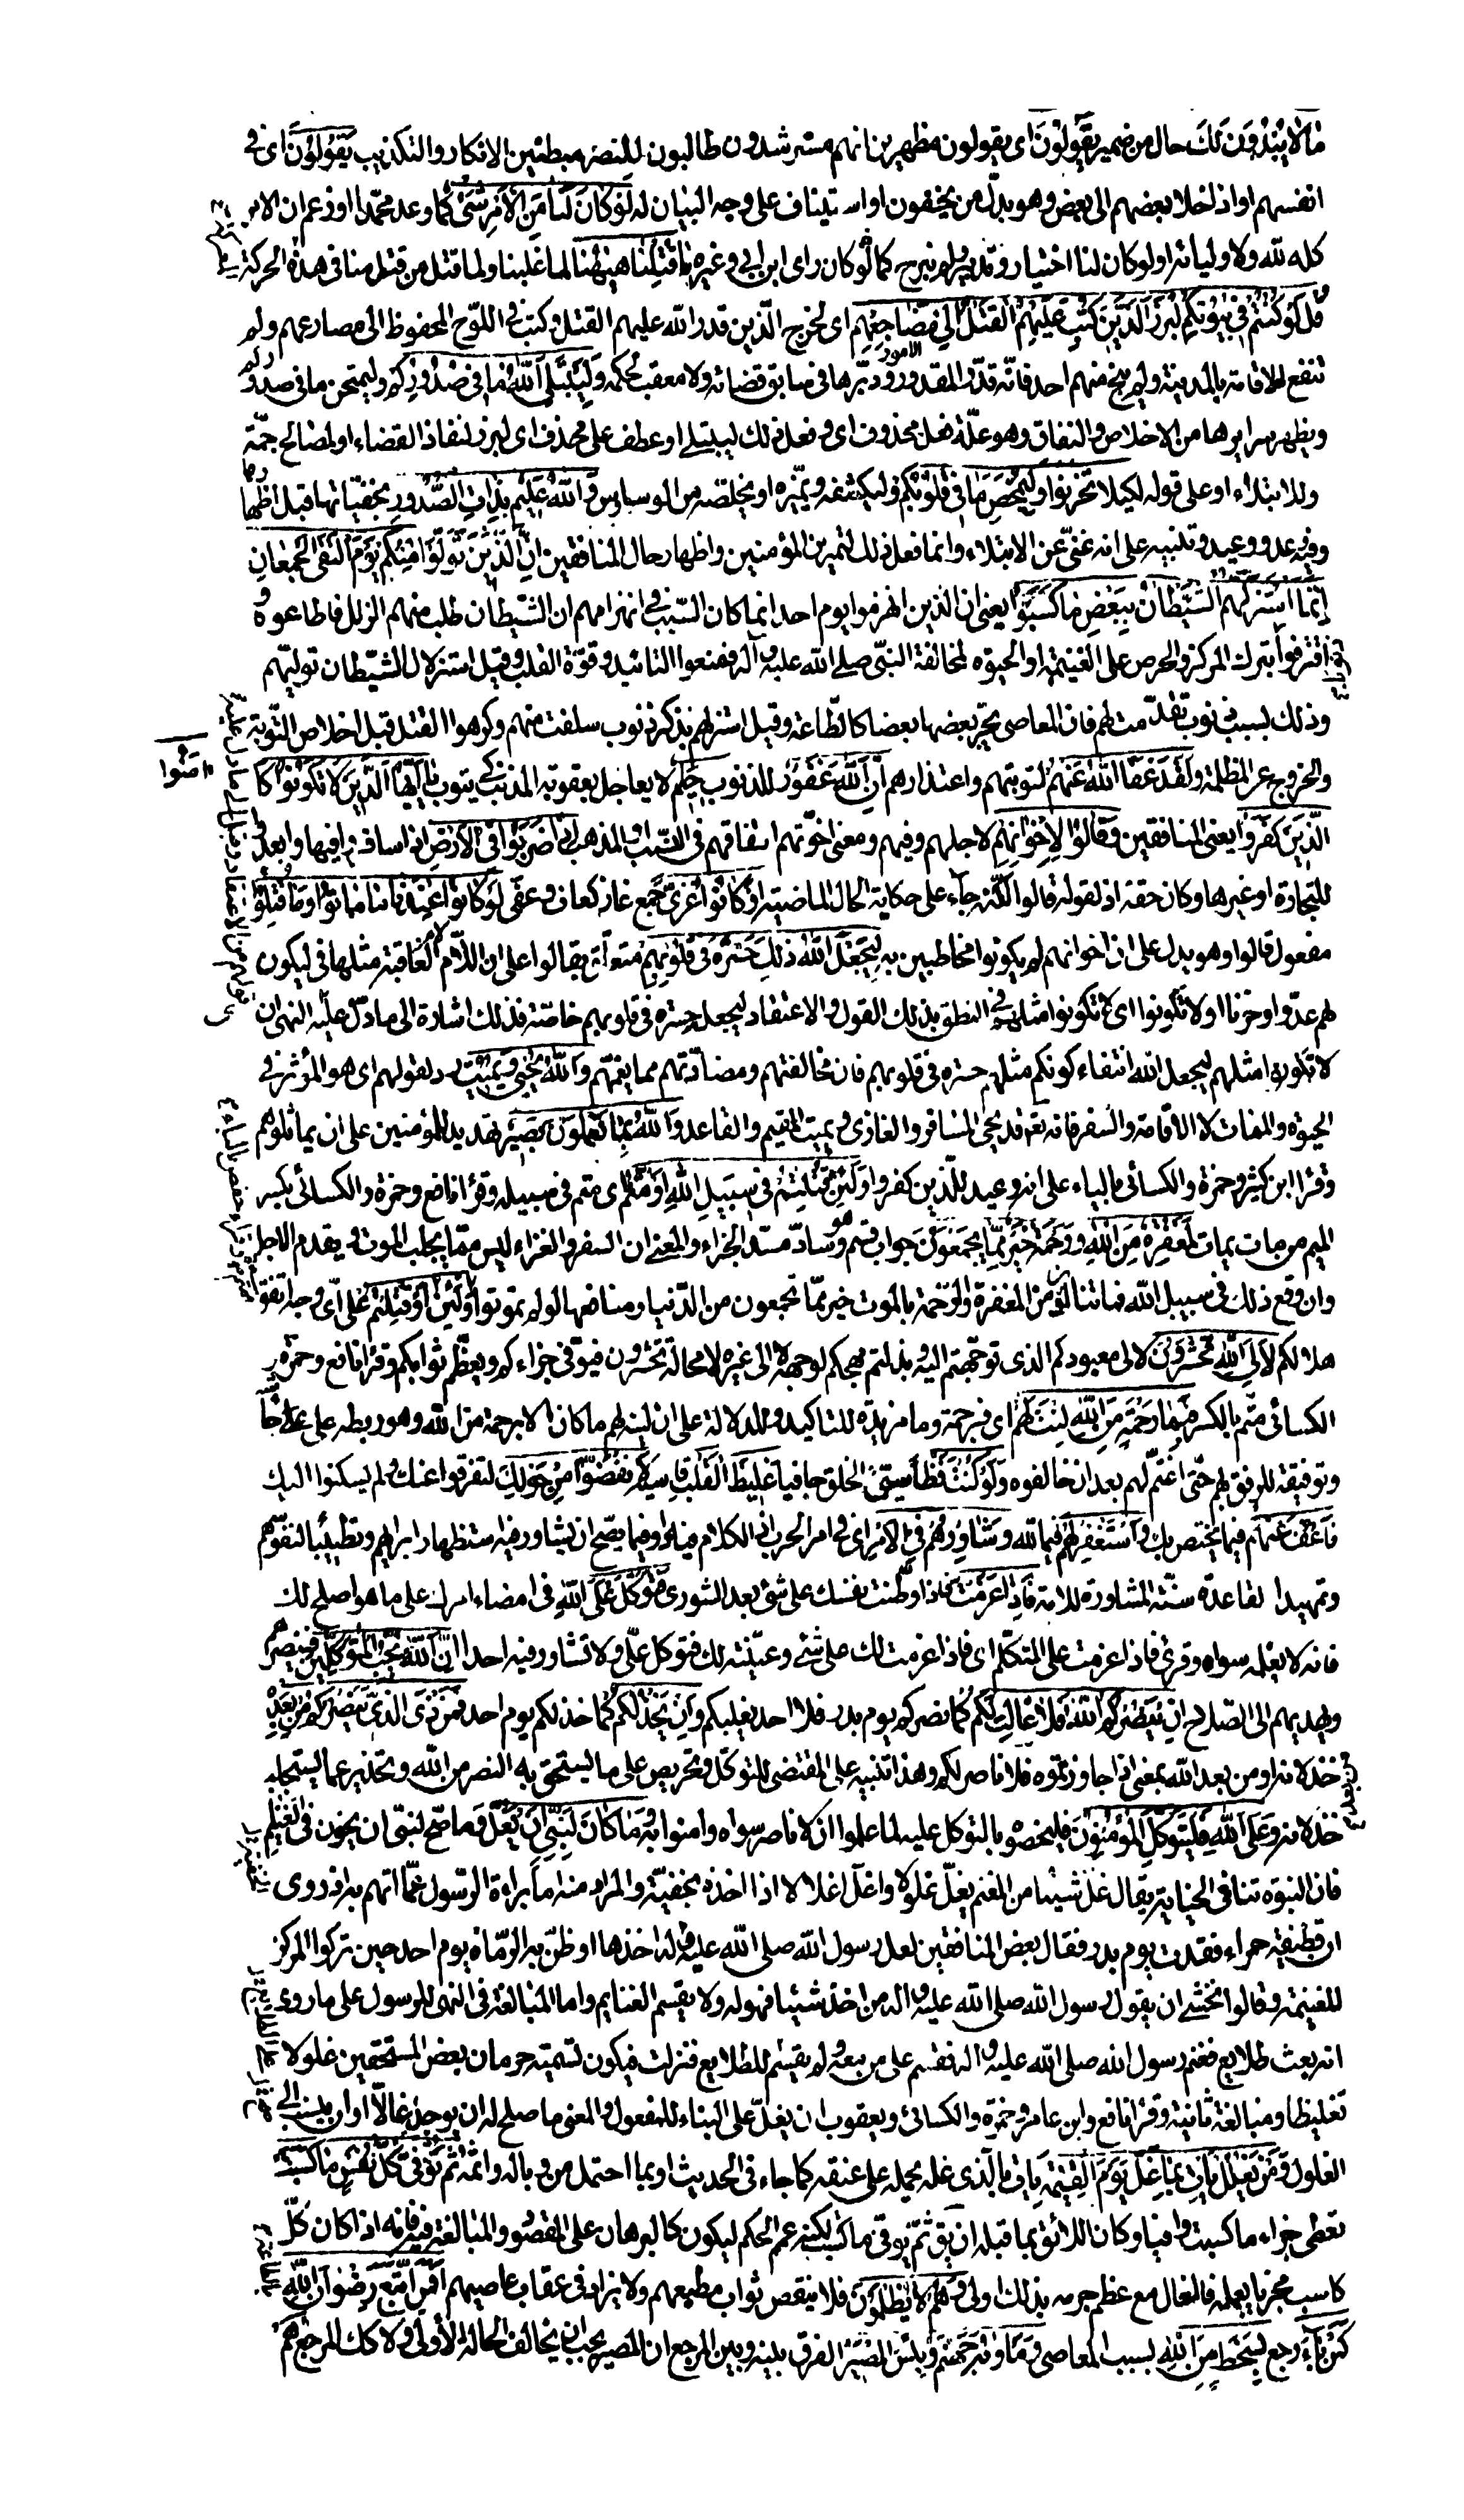 مَا لَا يُبْدُونَ لَكَ حال من ضمير يَقُولُونَ اى يقولون مظهرين انهم مسترشدون طالبون للنصر مبطنين الانكار والتكذيب يَقُولُونَ اى فى
انفسهم او اذا خلا بعضهم الى بعض وهو بدل من يخفون او استيناف على وجه البيان له لَوْ كَانَ لَنَا مِنَ الْأَمْرِ شَىْءٌ كما وعد محمد او زعم ان الامر
كله لله ولاوليائه او لو كان لنا اختيار وتدبير ولم نبرح كما كان راى ابن ابى وغيره مَا قُتِلْنَا هٰهُنَا لما غلبنا ولما قتل من قتل منا فى هذه المعركة
قُلْ لَوْ كُنْتُمْ فِى بُيُوتِكُمْ لَبَرَزَ الَّذِينَ كُتِبَ عَلَيْهِمُ الْقَتْلُ إِلَى مَضَاجِعِهِمْ اى لخرج الذين قدر الله عليهم القتل وكتب فى اللوح المحفوظ الى مصارعهم ولم
تنفع الاقامة بالمدينة ولم ينج منهم احد فانه قدر الامور ودبرها فى سابق قضائه ولا معقب لحكمه وَلِيَبْتَلِىَ اللهُ مَا فِى صُدُورِكُمْ وليمتحن ما فى صدوركم
ويظهر سرايرها من الاخلاص والنفاق وهو علة فعل محذوف اى وفعل ذلك ليبتلى او عطف على محذوف اى لبرز لنفاذ القضاء او لمصالح جمة
وللابتلاء او على قوله لكيلا تحزنوا وَلِيُمَحِّصَ مَا فِى قُلُوبِكُمْ وليكشفه ويميزه او يخلصه من الوساوس وَاللهُ عَلِيمٌ بِذَاتِ الصُّدُورِ بخفياتها قبل اظهارها
وفيه وعد ووعيد وتنبيه على انه غنى عن الابتلاء وانما فعل ذلك لتمرين المؤمنين واظهار حال المنافقين إِنَّ الَّذِينَ تَوَلَّوْا مِنْكُمْ يَوْمَ الْتَقَى الْجَمْعَانِ
إِنَّمَا اسْتَزَلَّهُمُ الشَّيْطَانُ بِبَعْضِ مَا كَسَبُوا يعنى ان الذين انهزموا يوم احد انما كان السبب فى انهزامهم ان الشيطان طلب منهم الزلل فاطاعوه و
اقترفوا بترك المركز والحرص على الغنيمة او الحيوة لمخالفة النبى صلى الله عليه وآله فمنعوا التائيد وقوة القلب وقيل استزلال الشيطان توليهم
وذلك بسبب ذنوب تقدمت لهم فان المعاصى يجر بعضها بعضا كالطاعة وقيل استزلهم بذكر ذنوب سلفت منهم وكرهوا القتل قبل اخلاص التوبة
والخروج عن المظلمة وَلَقَدْ عَفَا اللهُ عَنْهُمْ لتوبتهم واعتذارهم إِنَّ اللهَ غَفُورٌ للذنوب حَلِيمٌ لا يعاجل بعقوبة المذنب كى يتوب يَا أَيُّهَا الَّذِينَ لَا تَكُونُوا كَا
امَنُوا
الَّذِينَ كَفَرُوا يعنى المنافقين وَقَالُوا لِإِخْوَانِهِمْ لاجلهم وفيهم ومعنى اخوتهم اتفاقهم فى النسب او المذهب إِذَا ضَرَبُوا فِى الْأَرْضِ اذا سافروا فيها وابعدوا
للتجارة او غيرها وكان حقه اذ لقوله قالوا لكنه جاء على حكاية الحال الماضية أَوْ كَانُوا غُزًّى جمع غاز كعاف وعفى لَوْ كَانُوا عِنْدَنَا مَا مَاتُوا وَمَا قُتِلُوا
مفعول قالوا وهو يدل على ان اخوانهم لم يكونوا مخاطبين به لِيَجْعَلَ اللهُ ذٰلِكَ حَسْرَةً فِى قُلُوبِهِمْ متعلق بقالوا على ان اللام لام العاقبة مثلها فى ليكون
لهم عدوا وحزنا او لا تكونوا اى لا تكونوا مثلهم فى النطق بذلك القول والاعتقاد ليجعله حسرة فى قلوبهم خاصة فذلك اشارة الى ما دل عليه النهى ان
لا تكونوا مثلهم ليجعل الله انتفاء كونكم مثلهم حسرة فى قلوبهم فان مخالفتهم ومضادتهم مما يغمهم وَاللهُ يُحْيِى وَيُمِيتُ رد لقولهم اى هو المؤثر فى
الحيوة والممات لا الاقامة والسفر فانه تعالى قد يحيى المسافر والغازى ويميت المقيم والقاعد وَاللهُ بِمَا تَعْمَلُونَ بَصِيرٌ تهديد للمؤمنين على ان يماثلوهم
وقرا ابن كثير وحمزة والكسائى بالياء على انه وعيد للذين كفروا وَلَئِنْ قُتِلْتُمْ فِى سَبِيلِ اللهِ أَوْ مُتُّمْ اى متم فى سبيله وقرا نافع وحمزة والكسائى بكسر
الميم من مات يمات لَمَغْفِرَةٌ مِنَ اللهِ وَرَحْمَةٌ خَيْرٌ مِمَّا يَجْمَعُونَ جواب قسم وهو ساد مسد الجزاء والمعنى ان السفر والغزاء ليس مما يجلب الموت ويقدم الاجل
وان وقع ذلك فى سبيل الله فما تنالون من المغفرة والرحمة بالموت خير مما تجمعون من الدنيا ومنافعها لو لم تموتوا وَلَئِنْ مُتُّمْ أَوْ قُتِلْتُمْ على اى وجه اتفق
هلاككم لَإِلَى اللهِ تُحْشَرُونَ لالى معبودكم الذى توجهتم اليه وبذلتم مهجكم لوجهه لا الى غيره لا محالة تحشرون فيوفى جزاءكم ويعظم ثوابكم وقرا نافع وحمزة و
الكسائى متم بالكسر فَبِمَا رَحْمَةٍ مِنَ اللهِ لِنْتَ لَهُمْ اى فبرحمة وما مزيدة للتاكيد وللدلالة على ان لينه لهم ما كان الا برحمة من الله وهو ربطه على جاشه
وتوفيقه للرفق بهم حتى اغتم لهم بعد ان خالفوه وَلَوْ كُنْتَ فَظًّا سيئ الخلق جافيا غَلِيظَ الْقَلْبِ قاسيه لَانْفَضُّوا مِنْ حَوْلِكَ لتفرقوا عنك ولم يسكنوا اليك
فَاعْفُ عَنْهُمْ فيما يختص بك وَاسْتَغْفِرْ لَهُمْ فيما لله وَشَاوِرْهُمْ فِى الْأَمْرِ اى فى امر الحرب اذ الكلام فيه او فيما يصح ان يشاور فيه استظهارا برايهم وتطييبا لنفوسهم
وتمهيدا لقاعدة سنة المشاورة للامة فَإِذَا عَزَمْتَ فاذا وطنت نفسك على شئ بعد الشورى فَتَوَكَّلْ عَلَى اللهِ فى امضاء امرك على ما هو اصلح لك
فانه لا يعلمه سواه وقرئ فاذا عزمت على التكلم اى فاذا عزمت لك على شئ وعينته لك فتوكل على ولا تشاور فيه احدا إِنَّ اللهَ يُحِبُّ الْمُتَوَكِّلِينَ فينصرهم
ويهديهم الى الصلاح إِنْ يَنْصُرْكُمُ اللهُ فَلَا غَالِبَ لَكُمْ كما نصركم يوم بدر فلا احد يغلبكم وَإِنْ يَخْذُلْكُمْ كما خذلكم يوم احد فَمَنْ ذَا الَّذِى يَنْصُرُكُمْ مِنْ بَعْدِهِ
خذلانه او من بعد الله بمعنى اذا جاوزتموه فلا ناصر لكم وهذا تنبيه على المقتضى للتوكل وتحريص على ما يستحق به النصر من الله وتحذير عما يستجلب
خذلانه وَعَلَى اللهِ فَلْيَتَوَكَّلِ الْمُؤْمِنُونَ فليخصوه بالتوكل عليه لما علموا ان لا ناصر سواه وامنوا به وَمَا كَانَ لِنَبِىٍّ أَنْ يَغُلَّ وما صح لنبى ان يخون فى الغنايم
فان النبوة تنافى الخيانة يقال غل شيئا من المغنم يغل غلولا واغل اغلالا اذا اخذه بخفية والمراد منه اما براءة الرسول عما اتهم به اذ روى
ان قطيفة حمراء فقدت يوم بدر فقال بعض المنافقين لعل رسول الله صلى الله عليه وآله اخذها او ظن به الرماة يوم احد حين تركوا المركز
للغنيمة وقالوا نخشى ان يقول رسول الله صلى الله عليه وآله من اخذ شيئا فهو له ولا يقسم الغنايم واما المبالغة فى النهى للرسول على ما روى
انه بعث طلايع فغنم رسول الله صلى الله عليه وآله فقسم على من معه ولم يقسم للطلايع فنزلت فيكون تسمية حرمان بعض المستحقين غلولا
تغليظا ومبالغة ثانية وقرا نافع وابن عامر وحمزة والكسائى ويعقوب ان يغل على البناء للمفعول والمعنى ما صح له ان يوجد غالا او ان ينسب الى
الغلول وَمَنْ يَغْلُلْ يَأْتِ بِمَا غَلَّ يَوْمَ الْقِيٰمَةِ يات بالذى غله يحمله على عنقه كما جاء فى الحديث او بما احتمل من وباله واثمه ثُمَّ تُوَفَّى كُلُّ نَفْسٍ مَا كَسَبَتْ
تعطى جزاء ما كسبت وافيا وكان اللائق بما قبله ان يق ثم يوفى ما كسب لكنه عمم الحكم ليكون كالبرهان على المقصود والمبالغة فيه فانه اذا كان كل
كاسب مجزيا بعمله فالغال مع عظم جرمه بذلك اولى وَهُمْ لَا يُظْلَمُونَ فلا ينقص ثواب مطيعهم ولا يزاد فى عقاب عاصيهم أَفَمَنِ اتَّبَعَ رِضْوَانَ اللهِ
كَمَنْ بَاءَ رجع بِسَخَطٍ مِنَ اللهِ بسبب المعاصى وَمَأْوٰهُ جَهَنَّمُ وَبِئْسَ الْمَصِيرُ الفرق بينه وبين المرجع ان المصير يجب ان يخالف الحالة الاولى ولا كك المرجع هُمْ